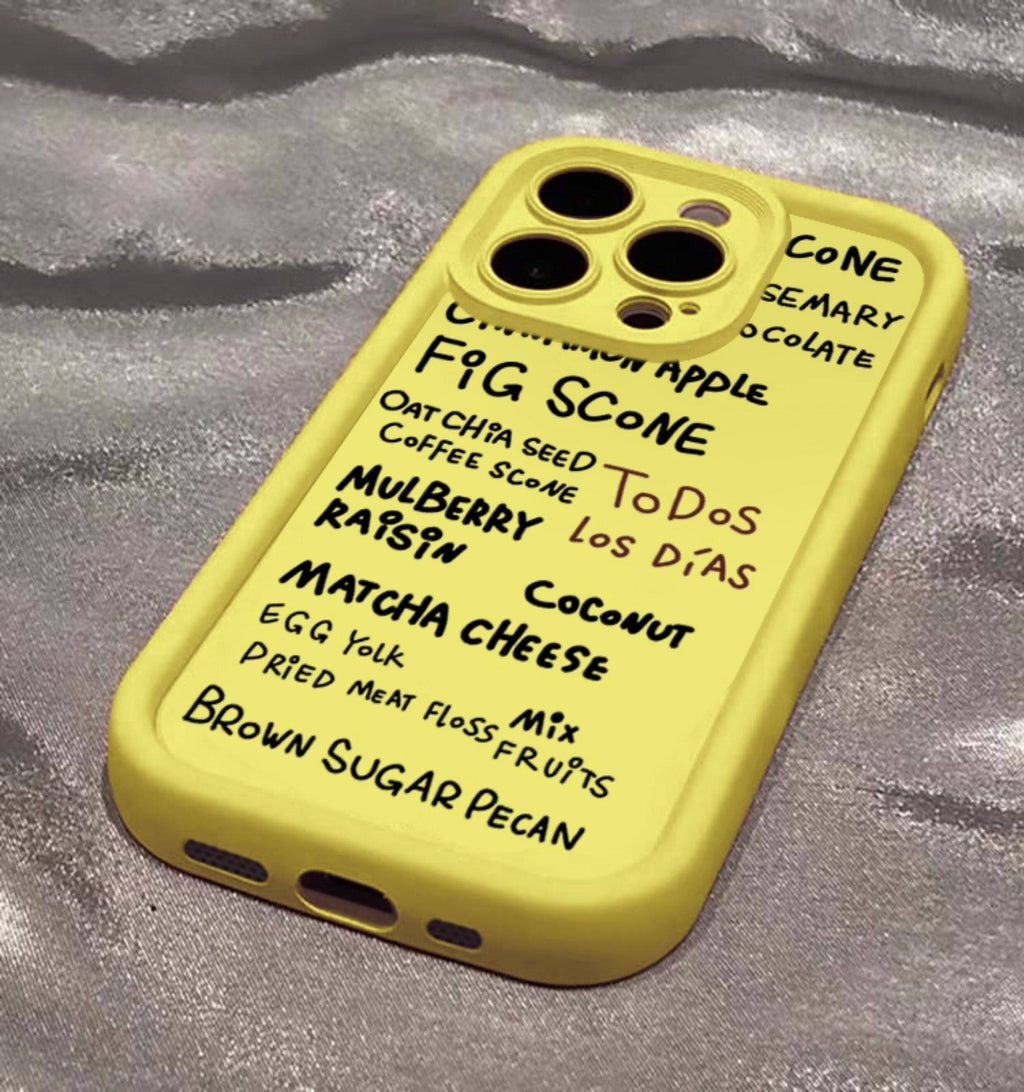 CoNE
SEMARY
OCoLATE
CiNNAMON APPLE
FiG SCoNE
OAT CHiA SEED
CoFFEE SCoNE
ToDoS
LoS DÍAS
MULBERRY
RAiSiN
COCONUT
MATCHA CHEESE
EGG YoLK
DRiED MEAT FLoSS
MiX
FRUiTS
BRoWN SUGAR PECAN